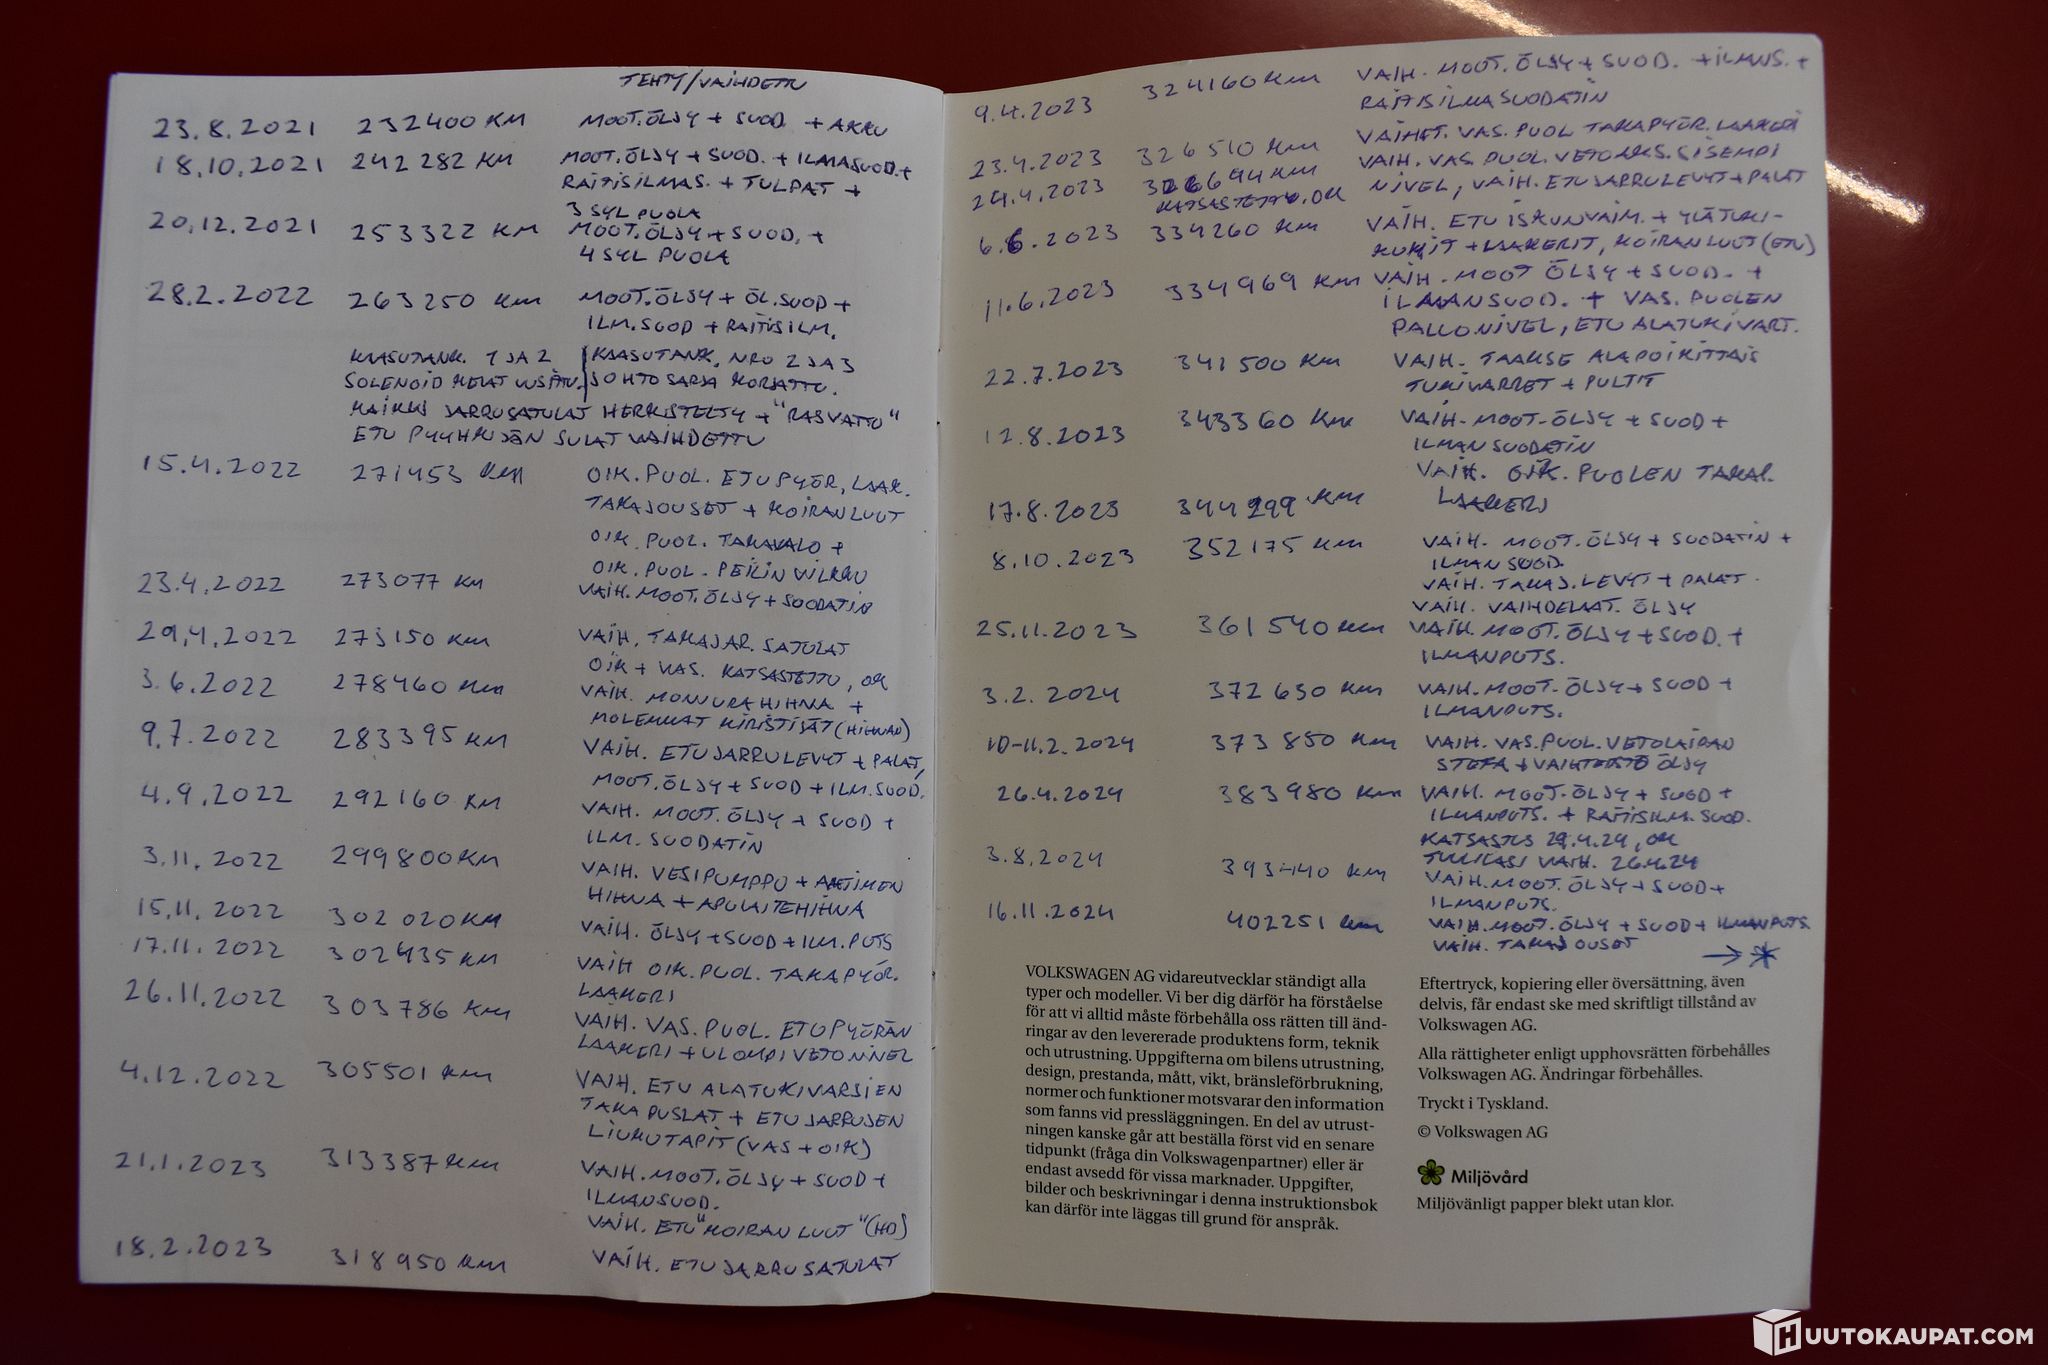 TEHTY/VAIHDETTU
23.8.2021 232400 KM MOOT.ÖLJY + SUOD + AKKU
18.10.2021 242 282 KM MOOT.ÖLJY + SUOD. + ILMASUOD.+
RAITISILMAS. + TULPAT +
3 SYL PUOLA
20.12.2021 253322 KM MOOT.ÖLJY + SUOD. +
4 SYL PUOLA
28.2.2022 263250 KM MOOT.ÖLJY + ÖL.SUOD +
ILM.SUOD + RAITISILM.
KAASUTANK. 1 JA 2 KAASUTANK. NRO 2 JA 3
SOLENOID JOHTOSARJA KORJATTU.
KAIKKI JARRUSATULAT HERKISTELTY + "RASVATTU"
ETU PYYHKIJÄN SULAT VAIHDETTU
15.4.2022 271453 KM OIK. PUOL. ETUPYÖR. LAAK.
TAKAJOUSET + KOIRANLUUT
OIK. PUOL. TAKAVALO +
OIK. PUOL. PEILIN VILKKU
23.4.2022 273077 KM VAIH. MOOT.ÖLJY + SUODATIN
29.4.2022 273150 KM VAIH. TAKAJAR. SATULAT
OIK + VAS. KATSASTETTU, OK
3.6.2022 278460 KM VAIH. MONIURAHIHNA +
MOLEMMAT KIRISTIJÄT (HIHNAN)
9.7.2022 283395 KM VAIH. ETUJARRULEVYT + PALAT,
MOOT.ÖLJY + SUOD + ILM.SUOD.
4.9.2022 292160 KM VAIH. MOOT.ÖLJY + SUOD +
ILM. SUODATIN
3.11.2022 299800 KM VAIH. VESIPUMPPU +
HIHNA + APULAITEHIHNA
15.11.2022 302 020 KM VAIH. ÖLJY + SUOD + ILM.PUTS
17.11.2022 302435 KM VAIH OIK. PUOL. TAKAPYÖR.
LAAKERI
26.11.2022 303786 KM VAIH. VAS. PUOL. ETUPYÖRÄN
LAAKERI + ULOMPI VETONIVEL
4.12.2022 305501 KM VAIH. ETU ALATUKIVARSIEN
TAKA PUSLAT + ETUJARRUJEN
LIUKUTAPIT (VAS + OIK)
21.1.2023 313387 KM VAIH. MOOT.ÖLJY + SUOD +
ILMANSUOD.
VAIH. ETU "KOIRAN LUUT" (HD)
18.2.2023 318950 KM VAIH. ETUJARRUSATULAT
9.4.2023 324160 KM VAIH. MOOT.ÖLJY + SUOD. + ILMAS. +
RAITISILMASUODATIN
VAIHET. VAS. PUOL TAKAPYÖR. LAAKERI
23.4.2023 326510 KM VAIH. VAS. PUOL. VETOAKS. SISEMPI
24.4.2023 326694 KM NIVEL, VAIH. ETUJARRULEVYT + PALAT
KATSASTETTU, OK
6.6.2023 334260 KM VAIH. ETU ISKUNVAIM. + YLÄTUKI-
KUMIT + LAAKERIT, KOIRANLUUT (ETU)
11.6.2023 334969 KM VAIH. MOOT ÖLJY + SUOD. +
ILMANSUOD. + VAS. PUOLEN
PALLONIVEL, ETU ALATUKIVART.
22.7.2023 341500 KM VAIH. TAAKSE ALAPOIKITTAIS
TUKIVARRET + PULTIT
12.8.2023 343360 KM VAIH. MOOT. ÖLJY + SUOD +
ILMANSUODATIN
VAIH. OIK. PUOLEN TAKAR.
17.8.2023 344299 KM LAAKERI
8.10.2023 352175 KM VAIH. MOOT. ÖLJY + SUODATIN +
ILMANSUOD.
VAIH. TAKAJ. LEVYT + PALAT
VAIH. VAIHDELAAT. ÖLJY
25.11.2023 361540 KM VAIH. MOOT. ÖLJY + SUOD. +
ILMANPUTS.
3.2.2024 372630 KM VAIH. MOOT. ÖLJY + SUOD +
ILMANPUTS.
10-11.2.2024 373850 KM VAIH. VAS. PUOL. VETOLAIPAN
STEFA + ÖLJY
26.4.2024 383980 KM VAIH. MOOT. ÖLJY + SUOD +
ILMANPUTS. + RAITISILM. SUOD.
KATSASTUS 29.4.24, OK
VAIH. 26.4.24
3.8.2024 393440 KM VAIH. MOOT. ÖLJY + SUOD +
ILMANPUTS.
16.11.2024 402251 KM VAIH. MOOT. ÖLJY + SUOD + ILMANPUTS.
VAIH. TAKAJOUSET → *
VOLKSWAGEN AG vidareutvecklar ständigt alla
typer och modeller. Vi ber dig därför ha förståelse
för att vi alltid måste förbehålla oss rätten till änd-
ringar av den levererade produktens form, teknik
och utrustning. Uppgifterna om bilens utrustning,
design, prestanda, mått, vikt, bränsleförbrukning,
normer och funktioner motsvarar den information
som fanns vid pressläggningen. En del av utrust-
ningen kanske går att beställa först vid en senare
tidpunkt (fråga din Volkswagenpartner) eller är
endast avsedd för vissa marknader. Uppgifter,
bilder och beskrivningar i denna instruktionsbok
kan därför inte läggas till grund för anspråk.
Eftertryck, kopiering eller översättning, även
delvis, får endast ske med skriftligt tillstånd av
Volkswagen AG.
Alla rättigheter enligt upphovsrätten förbehålles
Volkswagen AG. Ändringar förbehålles.
Tryckt i Tyskland.
© Volkswagen AG
Miljövård
Miljövänligt papper blekt utan klor.
HUUTOKAUPAT.COM